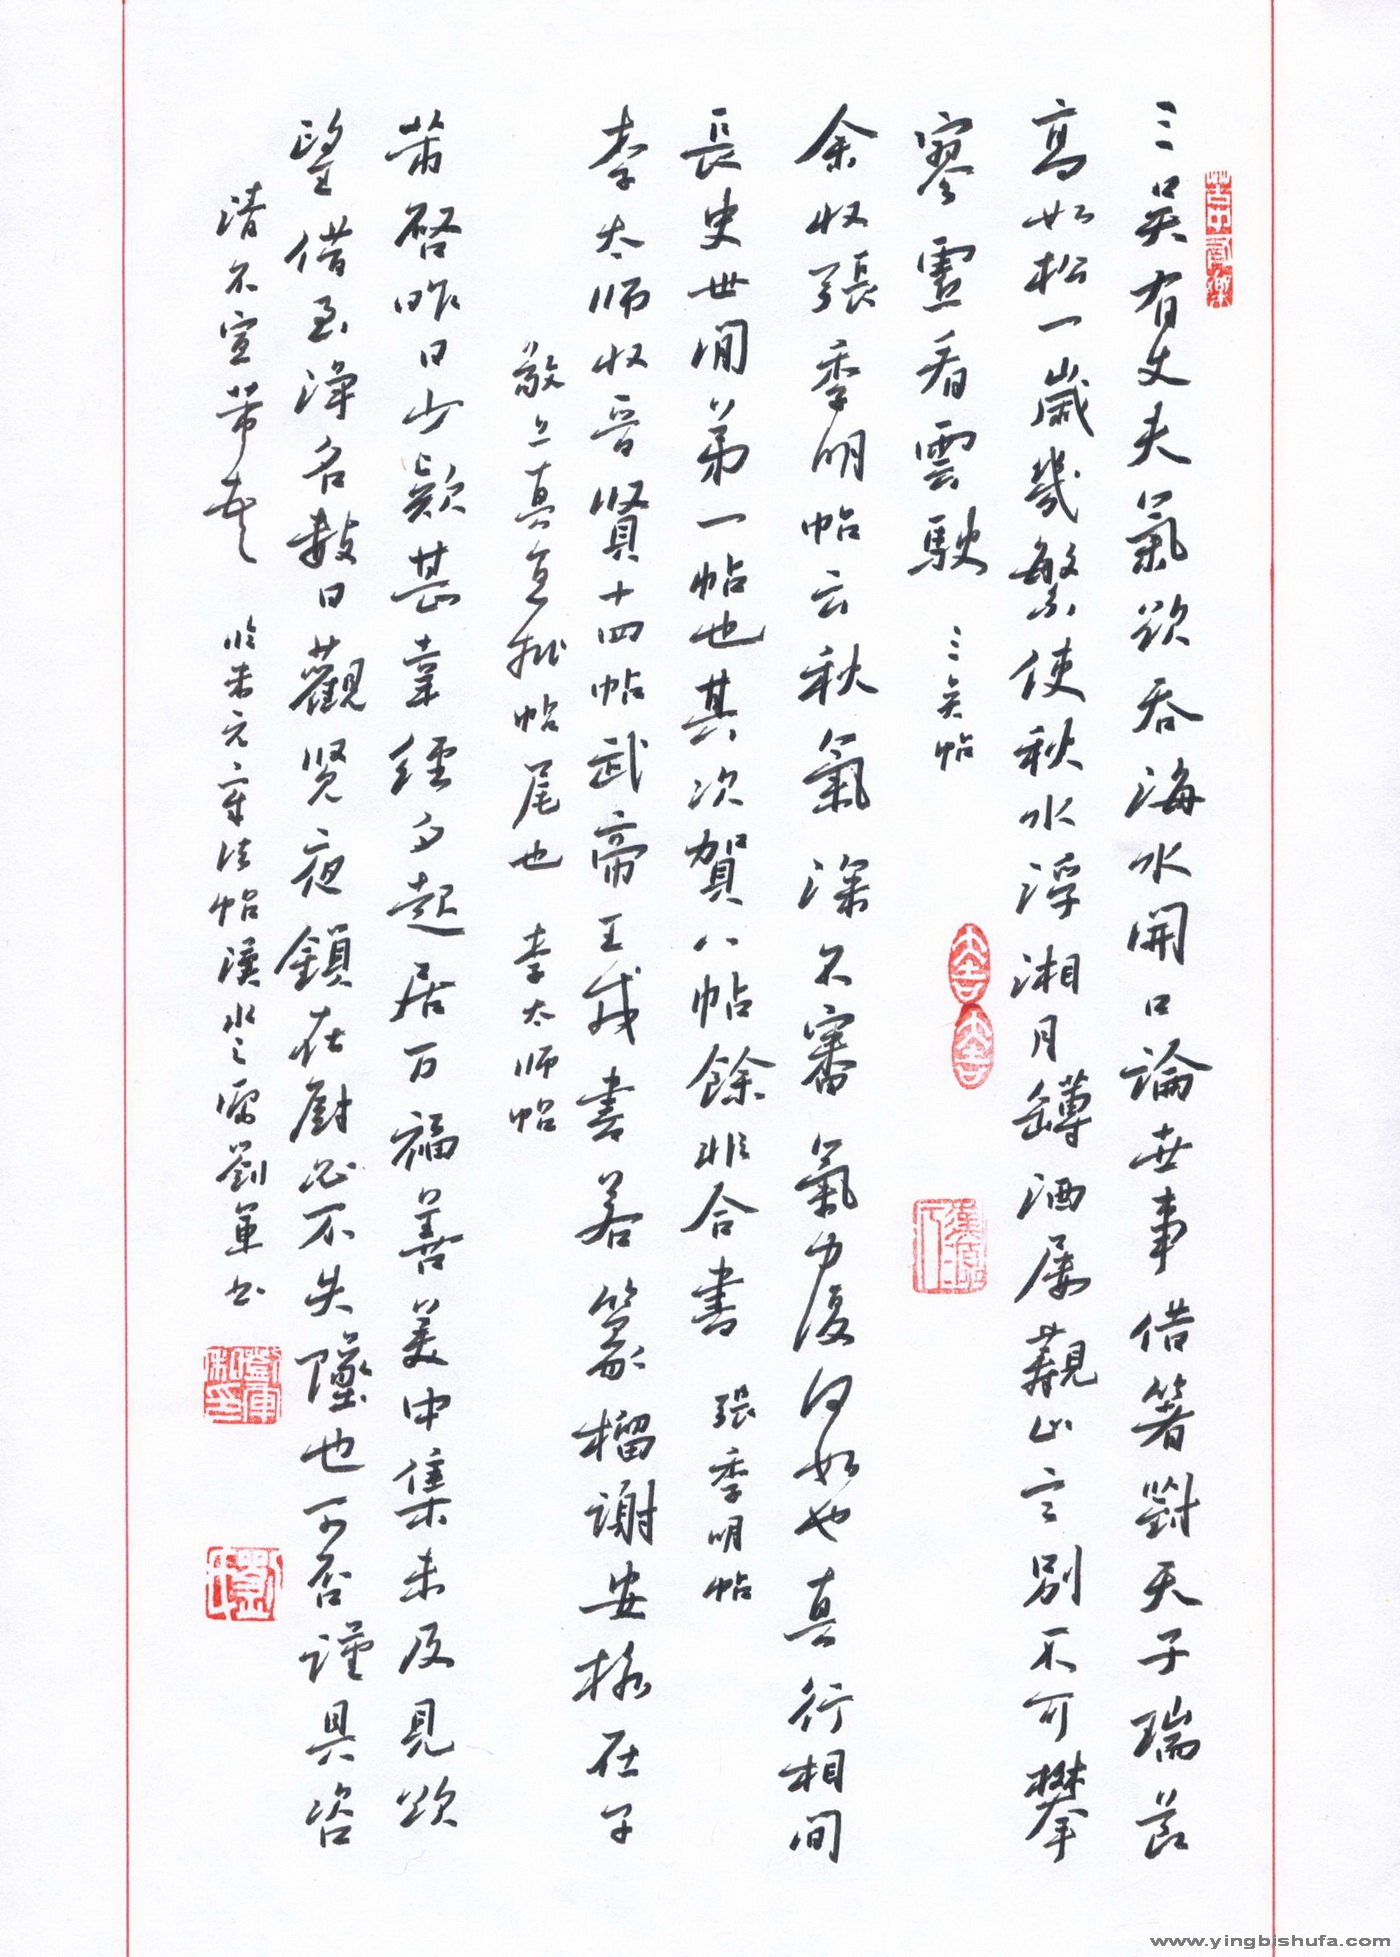 三吴有丈夫氣欲吞海水開口論世事借箸對天子瑞莭
高如松一歲幾繁使秋水浮湘月罇酒屬觀山言別不可攀
寥寥看雲駛 三吴帖
余収張季明帖云秋氣深不審氣力復何如也真行相間
長史世間第一帖也其次賀八帖餘非合書 張季明帖
李太師収晋賢十四帖武帝王戎書若篆榴謝安格在子
敬上真宜批帖尾也 李太师帖
芾啓昨日少款甚幸經夕起居万福善美中集未及見欲
望借玉淨名數日觀览夜鎖在廚必不失墜也可否謹具咨
清不宣芾奉 临米元章法帖漢水之濱劉軍书
www.yingbishufa.com